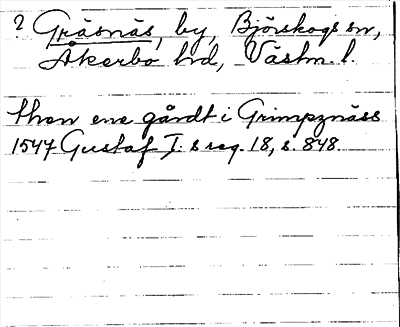 ? Gräsnäs, by, Björskogs sn,
Åkerbo hd, Västm. l.
then ene gårdt i Grimpznäss
1547 Gustaf I:s reg. 18, s. 848.